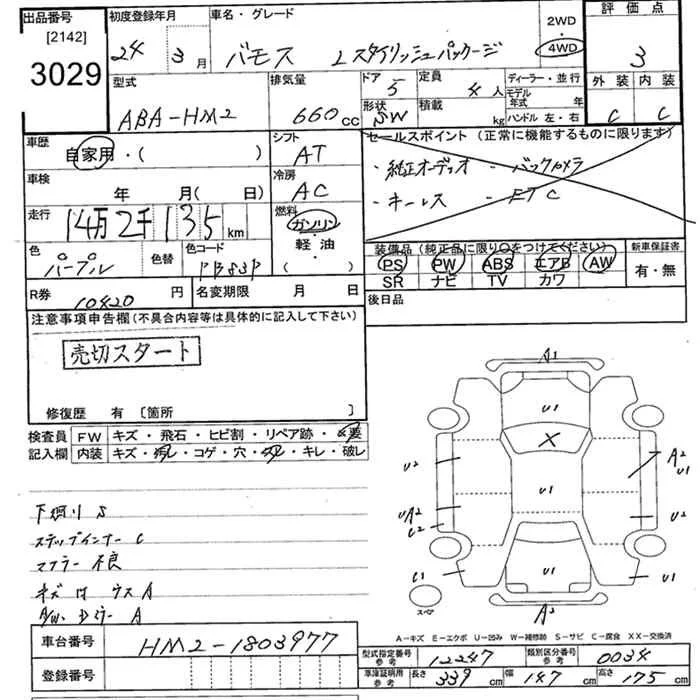 出品番号
[2142]
3029
初度登録年月
24 3月
車名・グレード
バモス Lスタイリッシュパッケージ
2WD
4WD
評価点
3
外装 内装
C C
型式
ABA-HM2
排気量
660cc
ドア
5
形状
SW
定員
4人
積載
kg
ディーラー・並行
モデル年式 年
ハンドル 左・右
車歴
自家用・( )
シフト
AT
セールスポイント(正常に機能するものに限ります)
・純正オーディオ ・バックカメラ
・キーレス ・ETC
車検
年 月( 日)
冷房
AC
走行
14万2千135km
燃料
ガソリン
軽油
( ・ )
色
パープル
色替
色コード
PB83P
装備品(純正品に限り○をつけてください)
PS PW ABS エアB AW
SR ナビ TV カワ
新車保証書
有・無
R券
10420円
名変期限 月 日
後日品
注意事項申告欄(不具合内容等は具体的に記入して下さい)
売切スタート
修復歴 有〔箇所 〕
検査員記入欄
FW キズ・飛石・ヒビ割・リペア跡・要
内装 キズ・汚れ・コゲ・穴・・キレ・破レ
下廻り S
ステップインナー C
マフラー 不良
キズ ウス A
A/W. Dミラー A
A1
U1
X
U2
A2
U1
U1
UA2
C2
U2
C1
U1
U1
A2
スペア
A-キズ E-エクボ U-凹み W-補修跡 S-サビ C-腐食 XX-交換済
車台番号
HM2-1803977
登録番号
型式指定番号
参考
12247
類別区分番号
参考
0034
車庫証明用
参考
長さ 339cm 幅 147cm 高さ 175cm